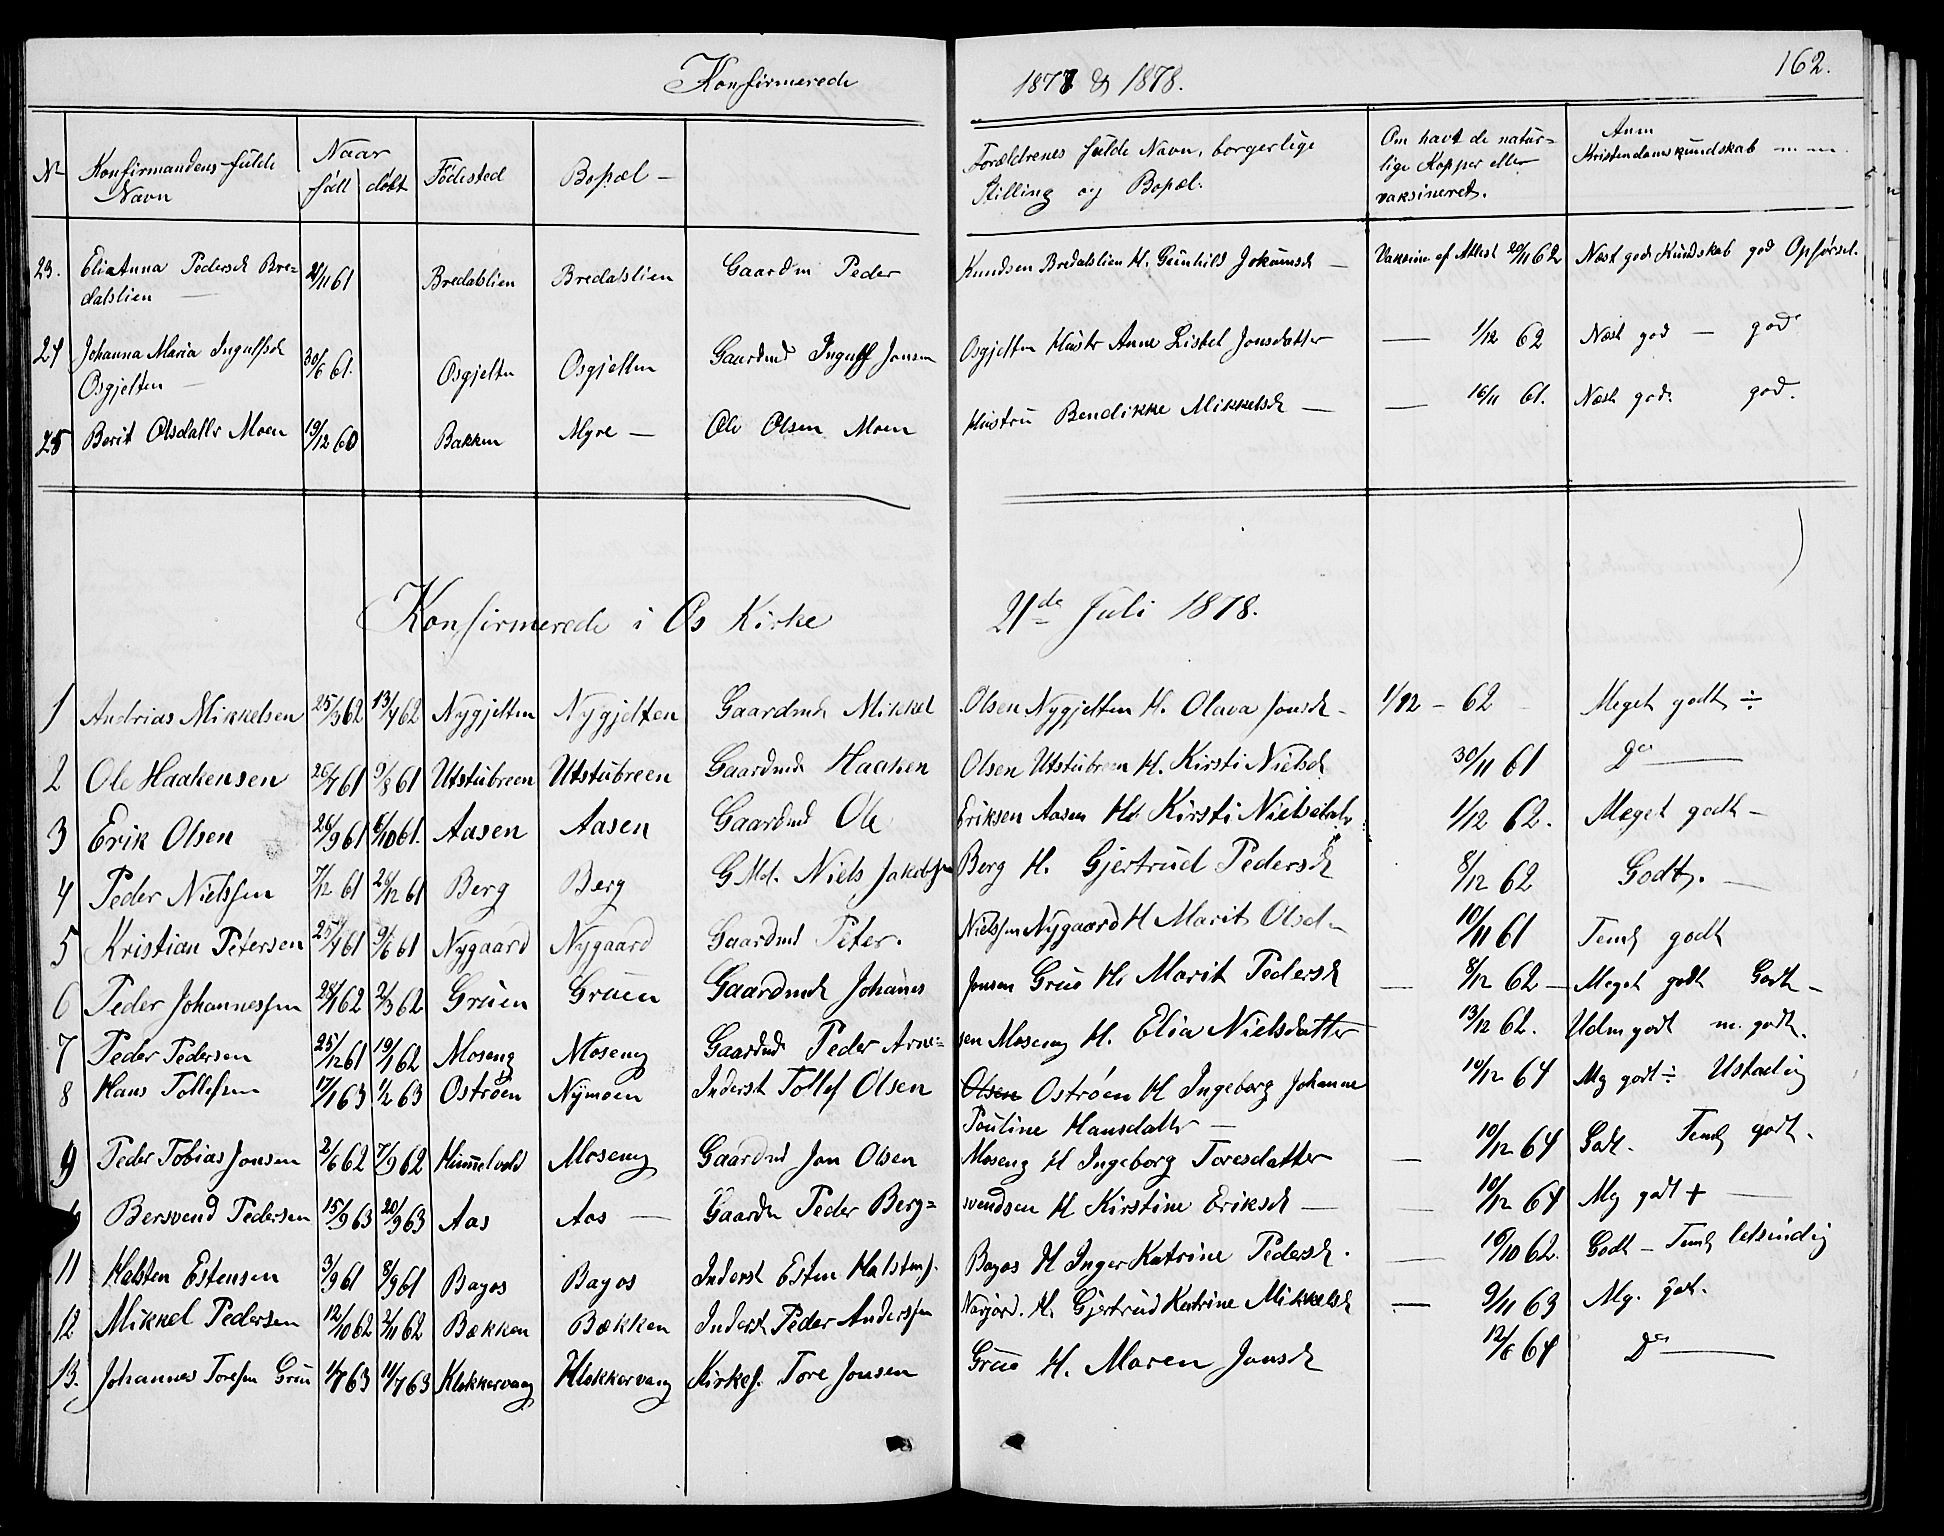 Konfirmerede 1877 & 1878. 162.
No Konfirmandens fulde Navn Naar født døbt Fødested Bopæl — Forældrenes fulde Navn, borgerlige Stilling og Bopæl. Om havt de naturlige Kopper eller vaksineret. Anm Kristendomskundskab m m.
23. Elia Anna Pedersd Bre= 21/11 61 Bredalslien Bredalslien Gaardm Peder Knudsen Bredalslien H. Gunhild Jokumsd — Vaksine ef Attest 20/11 62 Næst god Kundskab god Opførsel.
dalslien —
24 Johanna Maria Ingulfsd 30/6 61. Osgjelten Osgjelten Gaardmd Ingulf Jonsen Osgjelten Hustr Anne Lisbet Jonsdatter — 1/12 62 Næst god — god
Osgjelten —
25 Berit Olsdattr Moen 19/12 60 Bakken Myre — Ole Olsen Moen Hustru Bendikke Mikkelsd — — 16/11 61. Næst god. god.
Konfirmerede i Os Kirke 21de Juli 1878.
1 Andrias Mikkelsen 25/3 62 13/4 62 Nygjelten Nygjelten Gaardmd Mikkel Olsen Nygjelten H. Olava Jonsd — 1/12 — 62 Meget godt ÷
2 Ole Haakensen 26/7 61 9/8 61 Utstubreen Utstubreen Gaardmd Haaken Olsen Utstubreen H. Kirsti Nielsd 30/11 61 Do —
3 Erik Olsen 26/9 61 6/10 61. Aasen Aasen Gaardmd Ole Eriksen Aasen H. Kirsti Nielsdatr 1/12 62. Meget godt —
4 Peder Nielssen 7/12 61 26/12 61 Berg Berg G Md. Niels Jakobsen Berg H. Gjertrud Pedersd 8/12 62 Godt. —
5 Kristian Petersen 25/4 61 9/6 61 Nygaard Nygaard Gaardmd Peter. Nielssen Nygaard H Marit Olsd — 10/11 61 Teml godt
6 Peder Johannessen 28/1 62 2/3 62 Gruen Gruen Gaardmd Johanes Jonsen Grue H. Marit Pedersd — 8/12 62 — Meget godt Godt —
7 Peder Pedersen 25/12 61 19/1 62 Moseng Moseng Gaardmd Peder Arne= sen Moseng H. Elia Nielsdatter — 13/12 62. Udm godt m. godt.
8 Hans Tollefsen 17/1 63 1/2 63 Ostrøen Nymoen Inderst Tollef Olsen Olsen Ostrøen H Ingeborg Johanne 10/12 64 Mg godt ÷ Ustadig
Pouline Hansdattr —
9 Peder Tobias Jonsen 2/6 62 7/9 62 Himmelvold Moseng Gaardmd Jon Olsen Moseng H Ingeborg Toresdatter — 10/12 64 Godt. Teml godt.
10 Bersvend Pedersen 15/9 63 20/9 63 Aas Aas — Gaardm Peder Berg= svendsen H Kirstine Eriksd — — 10/12 64 Mg godt + —
11 Halsten Estensen 3/9 61 8/9 61 Bagos Bagos Inderst Esten Halstens. Bagos H Inger Katrine Pedersd. — 16/10 62. Godt — Teml letsindig
12 Mikkel Pedersen 12/10 62 2/11 62 Bækken Bækken Inderst Peder Anderssen Narjord. H. Gjertrud Katrine Mikkelsd — 9/11 63 Mg. godt.
13. Johannes Toresen Grue 1/7 63 11/7 63 Klokkervang Klokkervang Kirkes. Tore Jonsen Grue H. Maren Jonsd 12/6 64 Do —